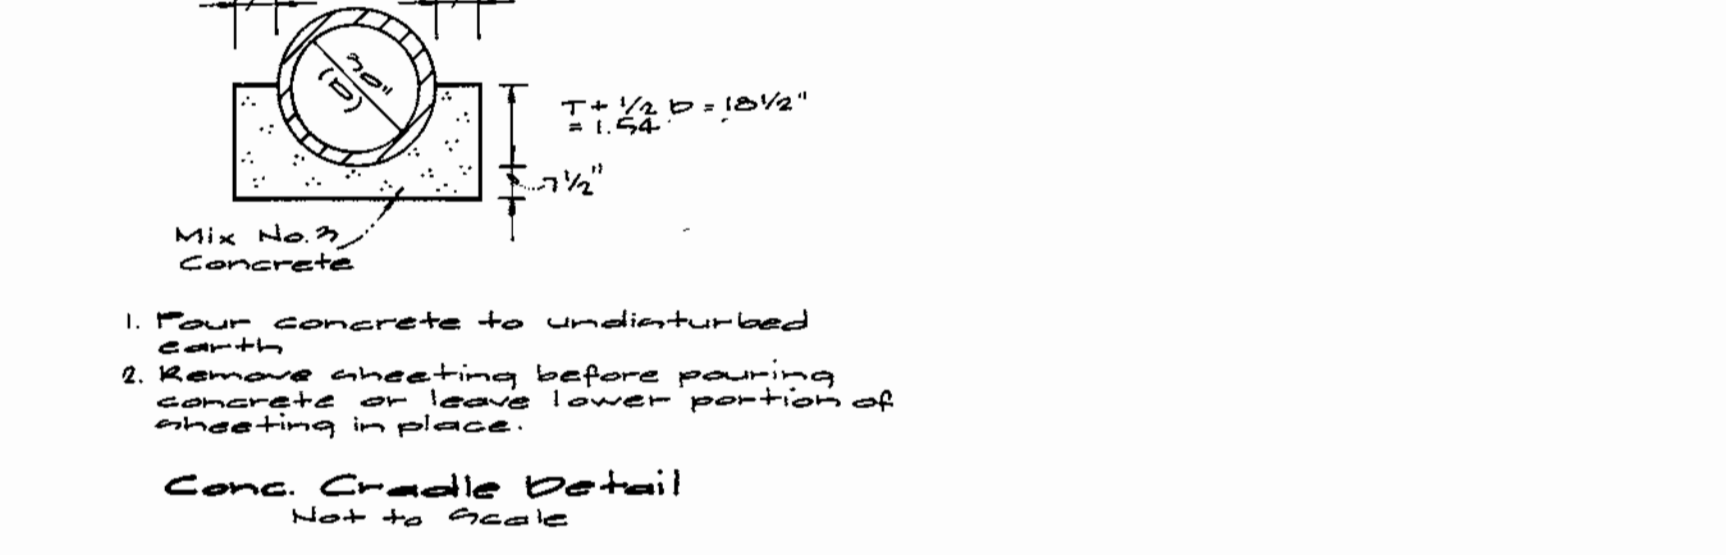 30"
(D)
T + 1/2 D = 18 1/2"
= 1.54
7 1/2"
Mix No. 3
Concrete
1. Pour concrete to undisturbed
earth
2. Remove sheeting before pouring
concrete or leave lower portion of
sheeting in place.
Conc. Cradle Detail
Not to Scale